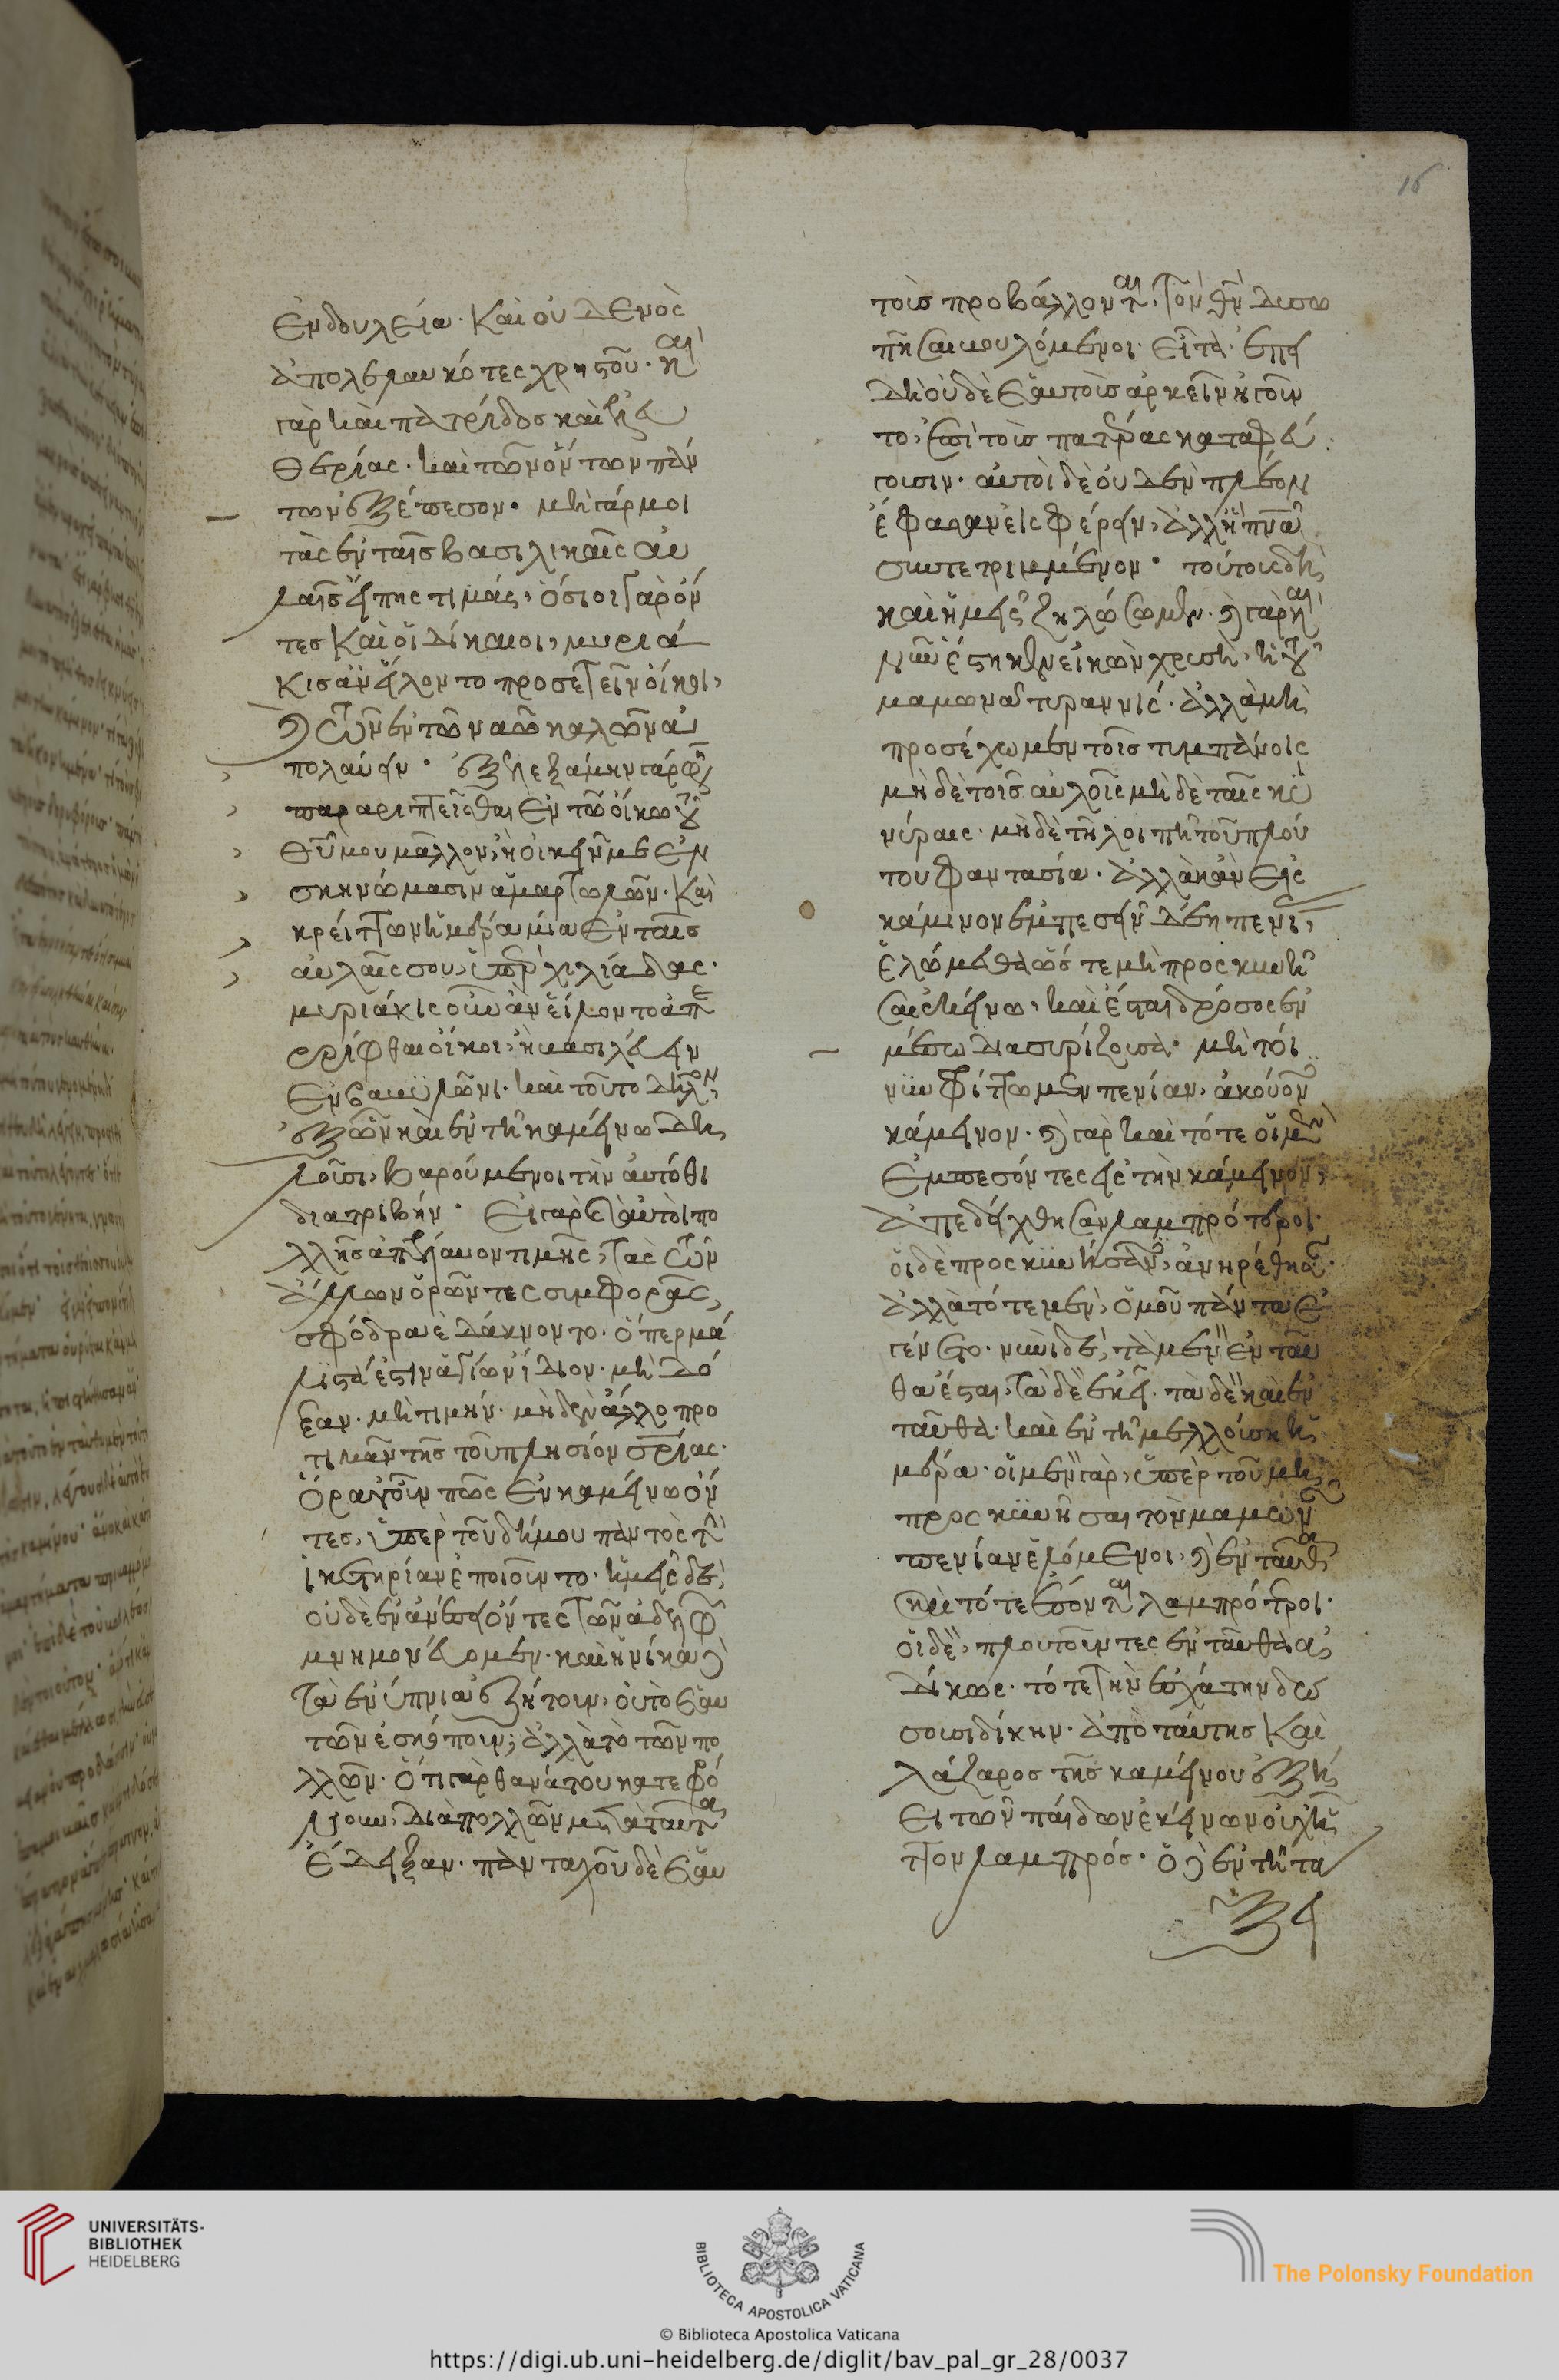 16
ἐν δουλεία· καὶ οὐδενὸς
ἀπολελαυκότες χρηστοῦ· καὶ
γὰρ καὶ πατρίδος καὶ ἐλευ
θερίας· καὶ τῶν ὄντων πάν
των ἐξέπεσον· μὴ γάρ μοι
τὰς ἐν ταῖς βασιλικαῖς αὐ
λαῖς εἴπης τιμάς· ὅσιοι γὰρ ὄν
τες καὶ δίκαιοι, μυριά
κις ἂν εἵλοντο προσετεῖν οἴκοι,
καὶ τῶν ἐν τῶ ναῶ καλῶν ἀ
πολαύειν· ἐξελεξάμην γάρ φησι
παραριπτεῖσθαι ἐν τῶ οἴκω τοῦ
θεοῦ μου μᾶλλον, ἢ οἰκεῖν με ἐν
σκηνώμασιν ἁμαρτωλῶν· καὶ
κρείττων ἡμέρα μία ἐν ταῖς
αὐλαῖς σου, ὑπὲρ χιλιάδας·
μυριάκις οὖν ἂν εἵλοντο ἀπε
ρρίφθαι οἴκοι, ἢ βασιλεύειν
ἐν βαβυλῶνι· καὶ τοῦτο δῆλον,
ἐξ ὧν καὶ ἐν τῆ καμίνω δη
λοῦσι, βαρούμενοι τὴν αὐτόθι
διατριβήν· εἰ γὰρ καὶ αὐτοὶ πο
λλῆς ἀπήλαυον τιμῆς, τὰς τῶν
ἄλλων ὁρῶντες συμφορὰς,
σφόδρα ἐδάκνοντο· ὅπερ μά
λιστά ἐστιν ἁγίων ἴδιον· μὴ δό
ξαν· μὴ τιμήν· μὴδὲν ἄλλο προ
τιμᾶν τῆς τοῦ πλησίον σωτηρίας·
ὅρα γοῦν πῶς ἐν καμίνω ὄν
τες, ὑπὲρ τοῦ δήμου παντὸς τὴν
ἱκετηρίαν ἐποιοῦντο· ἡμεῖς δὲ,
οὐδὲ ἐν ἀνέσει ὄντες τῶν ἀδελφῶν
μνημονεύομεν· καὶ ἡνίκα καὶ
τὰ ἐνύπνια ἐζήτουν, οὐ τὸ ἑαυ
τῶν ἐσκόπουν; ἀλλὰ τὸ τῶν πο
λλῶν· ὅτι γὰρ θανάτου κατεφρό
νουν, διὰ πολλῶν μετὰ ταῦτα
ἔδειξαν· πανταχοῦ δὲ ἑαυ
τοὺς προβάλλονται, τὸν θεὸν δυσω
πῆσαι βουλόμενοι· εἶτα ἐπει
δὴ οὐδὲ ἑαυτοὺς ἀρκεῖν ἡγοῦν
το, ἐπὶ τοὺς πατέρας καταφεύ
γουσιν· αὐτοὶ δὲ οὐδὲν πλέον
ἔφασαν εἰσφέρειν, ἀλλ' ἢ πνεῦμα
συντετριμμένον· τούτους δὴ
καὶ ἡμεῖς ζηλώσωμεν· καὶ γὰρ καὶ
νῦν ἕστηκεν εἰκὼν χρυσῆ, ἡ τοῦ
μαμωνᾶ τυραννίς· ἀλλὰ μὴ
προσέχωμεν τοῖς τυμπάνοις
μὴδὲ τοῖς αὐλοῖς μὴδὲ ταῖς κι
νύραις· μὴδὲ τῆ λοιπῆ τοῦ πλού
του φαντασία· ἀλλὰ κἂν εἰς
κάμινον ἐμπεσεῖν δέη πενίας,
ἑλώμεθα ὥστε μὴ προσκυνῆ
σαι ἐκείνω, καὶ ἔσται δρόσος ἐν
μέσω διασυρίζουσα· μὴ τοί
νυν φρίττωμεν πενίαν, ἀκούοντες
κάμινον· καὶ γὰρ καὶ τότε οἱ μὲν
ἐμπεσόντες εἰς τὴν κάμινον,
ἀπεδείχθησαν λαμπρότεροι·
οἱ δὲ προσκυνήσαντες, ἀνηρέθησαν·
ἀλλὰ τότε μὲν, ὁμοῦ πάντα ἐ
γένετο· νυνὶ δὲ, τὰ μὲν ἐνταῦ
θα ἔσται, τὰ δὲ ἐκεῖ· τὰ δὲ καὶ ἐν
ταῦθα· καὶ ἐν τῆ μελλούση ἡ
μέρα· οἱ μὲν γὰρ, ὑπὲρ τοῦ μὴ
προσκυνῆσαι τὸν μαμωνᾶν
πενίαν ἑλόμενοι, καὶ ἐνταῦθα
καὶ τότε ἔσονται λαμπρότεροι·
οἱ δὲ, πλουτοῦντες ἐνταῦθα ἀ
δίκως· τότε τὴν ἐσχάτην δώ
σουσι δίκην· ἀπὸ ταύτης καὶ
λάζαρος τῆς καμίνου ἐξή
ει τῶν παίδων ἐκείνων οὐχ ἧ
ττον λαμπρός· ὁ καὶ ἐν τῆ τά
ξει
UNIVERSITÄTS-
BIBLIOTHEK
HEIDELBERG
BIBLIOTECA APOSTOLICA VATICANA
The Polonsky Foundation
© Biblioteca Apostolica Vaticana
https://digi.ub.uni-heidelberg.de/diglit/bav_pal_gr_28/0037